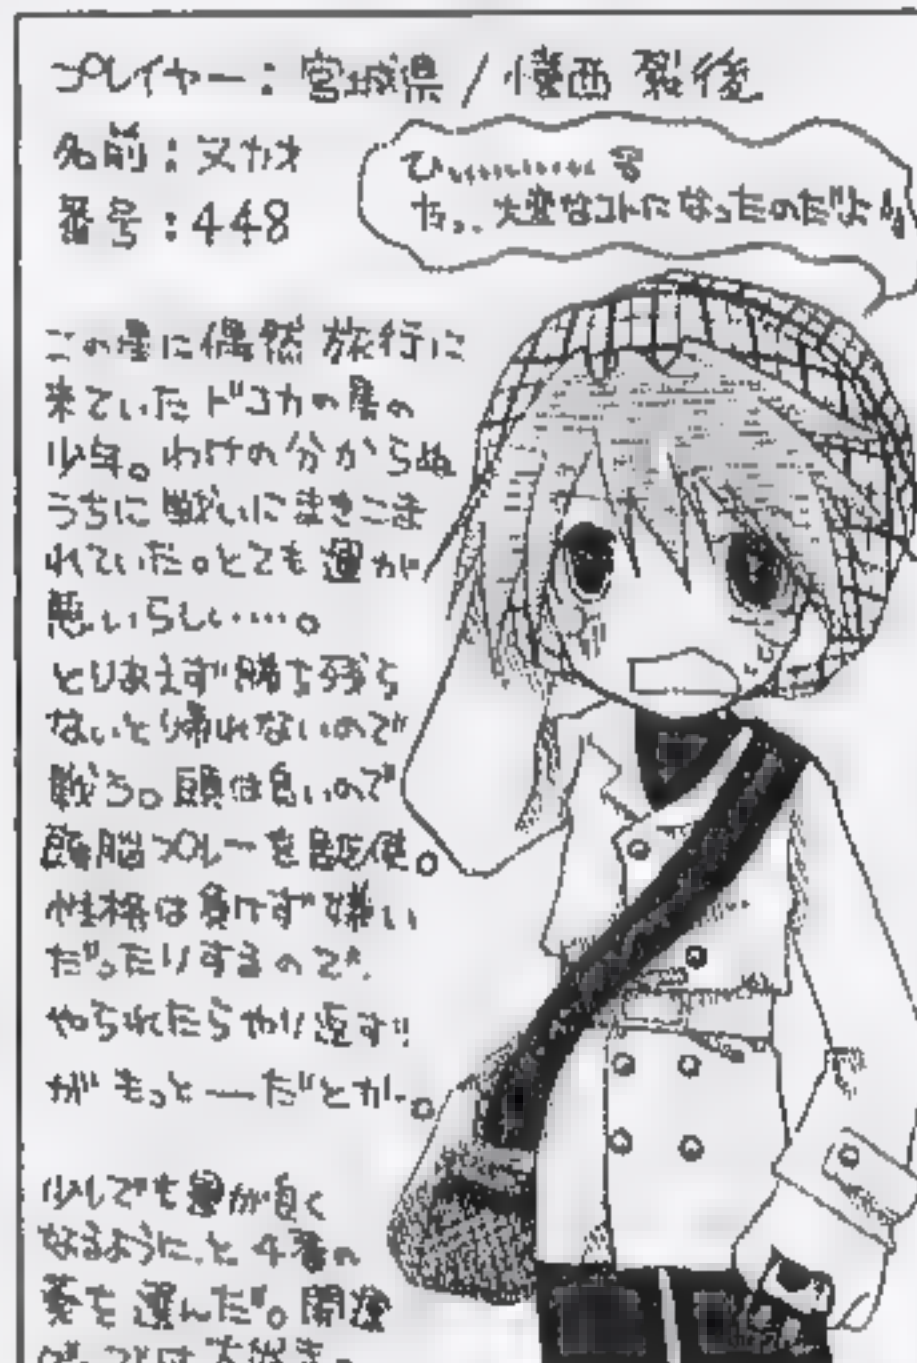 プレイヤー：宮城県/ 西 裂後
名前：ヌカオ
番号：448
ひ
たっ、大変なコトになったのだよ
この星に偶然旅行に
来ていたドコカの星の
少年。わけの分からぬ
うちに戦いにまきこま
れていた。とても運が
悪いらしい……。
とりあえず勝ち残ら
ないと帰れないので
戦う。頭は良いので
頭脳プレーを駆使。
性格は負けず嫌い
だったりするので、
やられたらやり返す!!
がもっとーだとか。
少しでも運が良く
なるように、と4番の
葵を選んだ。開後